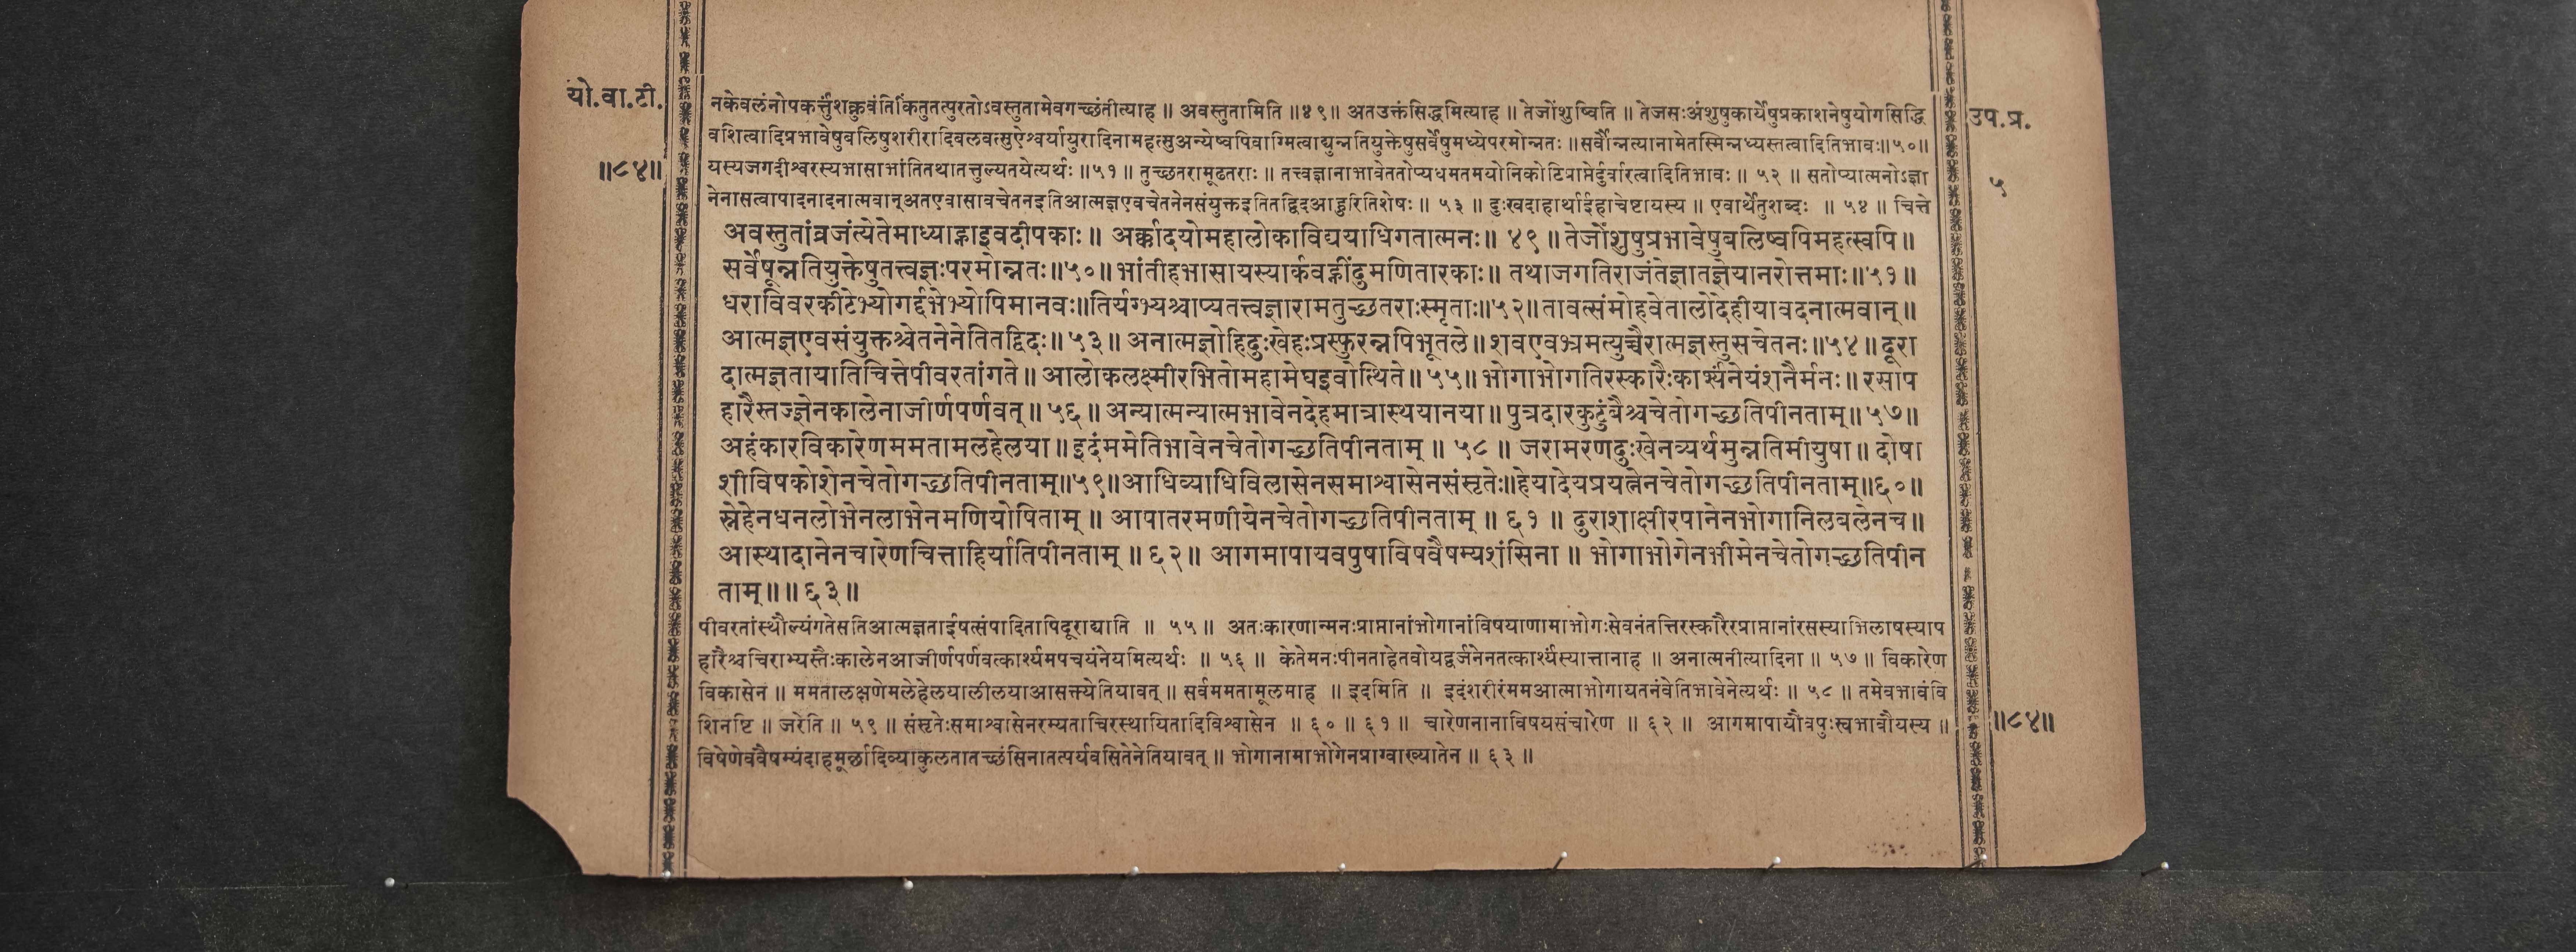 यो.वा.टी.
॥८४॥
नकेवलंनोपकर्त्तुंशक्नुवंतिकिंतुतत्पुरतोऽवस्तुतामेवगच्छंतीत्याह ॥ अवस्तुतामिति ॥४९॥ अतउक्तंसिद्धमित्याह ॥ तेजोंशुष्विति ॥ तेजसःअंशुषुकार्येषुप्रकाशनेषुयोगसिद्धि
वशित्वादिप्रभावेषुबलिषुशरीरादिबलवत्सुऐश्वर्यायुरादिनामहत्सुअन्येष्वपिवाग्मित्वाद्युन्नतियुक्तेषुसर्वेषुमध्येपरमोन्नतः ॥ सर्वोन्नत्यानामेतस्मिन्नध्यस्तत्वादितिभावः॥५०॥
यस्यजगदीश्वरस्यभासाभांतितथातत्तुल्यतयेत्यर्थः ॥५१॥ तुच्छतरामूढतराः ॥ तत्त्वज्ञानाभावेततोप्यधमतमयोनिकोटिप्राप्तेर्दुर्वारत्वादितिभावः ॥ ५२ ॥ सतोप्यात्मनोऽज्ञा
नेनासत्वापादनादनात्मवान्अतएवासावचेतनइतिआत्मज्ञएवचेतनेनसंयुक्तइतितद्विदआहुरितिशेषः ॥ ५३ ॥ दुःखदाहार्थाईहाचेष्टायस्य ॥ एवार्थेतुशब्दः ॥ ५४ ॥ चित्ते
अवस्तुतांव्रजंत्येतेमाध्याह्नाइवदीपकाः॥ अर्क्कादयोमहालोकाविद्ययाधिगतात्मनः॥ ४९ ॥ तेजोंशुषुप्रभावेषुबलिष्वपिमहत्स्वपि॥
सर्वेषून्नतियुक्तेषुतत्त्वज्ञःपरमोन्नतः॥५०॥ भांतीहभासायस्यार्कवह्नींदुमणितारकाः॥ तथाजगतिराजंतेज्ञातज्ञेयानरोत्तमाः॥५१॥
धराविवरकीटेभ्योगर्द्दभेभ्योपिमानवः॥तिर्यग्भ्यश्चाप्यतत्त्वज्ञारामतुच्छतराःस्मृताः॥५२॥तावत्संमोहवेतालोदेहीयावदनात्मवान्॥
आत्मज्ञएवसंयुक्तश्चेतनेनेतितद्विदः॥५३॥ अनात्मज्ञोहिदुःखेहःप्रस्फुरन्नपिभूतले॥शवएवभ्रमत्युच्चैरात्मज्ञस्तुसचेतनः॥५४॥दूरा
दात्मज्ञतायातिचित्तेपीवरतांगते॥ आलोकलक्ष्मीरभितोमहामेघइवोत्थिते॥ ५५॥ भोगाभोगतिरस्कारैःकार्श्यंनेयंशनैर्मनः॥ रसाप
हारैस्तज्ज्ञेनकालेनाजीर्णपर्णवत्॥ ५६ ॥ अन्यात्मन्यात्मभावेनदेहमात्रास्थयानया॥ पुत्रदारकुटुंबैश्चचेतोगच्छतिपीनताम्॥५७॥
अहंकारविकारेणममतामलहेलया॥इदंममेतिभावेनचेतोगच्छतिपीनताम् ॥ ५८ ॥ जरामरणदुःखेनव्यर्थमुन्नतिमीयुषा॥ दोषा
शीविषकोशेनचेतोगच्छतिपीनताम्॥५९॥आधिव्याधिविलासेनसमाश्वासेनसंसृतेः॥हेयादेयप्रयत्नेनचेतोगच्छतिपीनताम्॥६०॥
स्नेहेनधनलोभेनलाभेनमणियोषिताम् ॥ आपातरमणीयेनचेतोगच्छतिपीनताम् ॥ ६१ ॥ दुराशाक्षीरपानेनभोगानिलबलेनच॥
आस्थादानेनचारेणचित्ताहिर्यातिपीनताम् ॥ ६२॥ आगमापायवपुषाविषवैषम्यशंसिना ॥ भोगाभोगेनभीमेनचेतोगच्छतिपीन
ताम्॥॥६३॥
पीवरतांस्थौल्यंगतेसतिआत्मज्ञताईषत्संपादितापिदूराद्याति ॥ ५५ ॥ अतःकारणान्मनःप्राप्तानांभोगानांविषयाणामाभोगःसेवनंतत्तिरस्कारैरप्राप्तानांरसस्याभिलाषस्याप
हारैश्चचिराभ्यस्तैःकालेनआजीर्णपर्णवत्कार्श्यमपचयंनेयमित्यर्थः ॥ ५६ ॥ केतेमनःपीनताहेतवोयद्वर्जनेनतत्कार्श्यंस्यात्तानाह ॥ अनात्मनीत्यादिना ॥ ५७ ॥ विकारेण
विकासेन ॥ ममतालक्षणेमलेहेलयालीलयाआसक्त्येतियावत् ॥ सर्वममतामूलमाह ॥ इदमिति ॥ इदंशरीरंममआत्माभोगायतनंवेतिभावेनेत्यर्थः ॥ ५८ ॥ तमेवभावंवि
शिनष्टि ॥ जरेति ॥ ५९ ॥ संसृतेःसमाश्वासेनरम्यताचिरस्थायितादिविश्वासेन ॥ ६० ॥ ६१ ॥ चारेणनानाविषयसंचारेण ॥ ६२ ॥ आगमापायौवपुःस्वभावौयस्य ॥
विषेणेववैषम्यंदाहमूर्छादिव्याकुलतातच्छंसिनातत्पर्यवसितेनेतियावत् ॥ भोगानामाभोगेनप्राग्वाख्यातेन ॥ ६३ ॥
उप.प्र.
५
॥८४॥